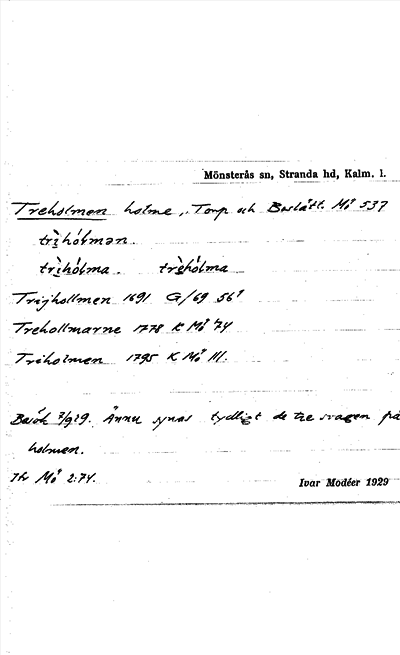 Mönsterås sn, Stranda hd, Kalm. l.
Treholmen holme, Torp och Boslätt. Mö 537
trihólmən.
trihólma. trèhólma
Trijhollmen 1691 G/69 56¹
Trehollmarne 1778 K Mö 74
Treholmen 1795 K Mö 111.
Besök 7/9 29. Ännu synas tydligt de tre på
holmen.
Jfr Mö 2:74.
Ivar Modéer 1929